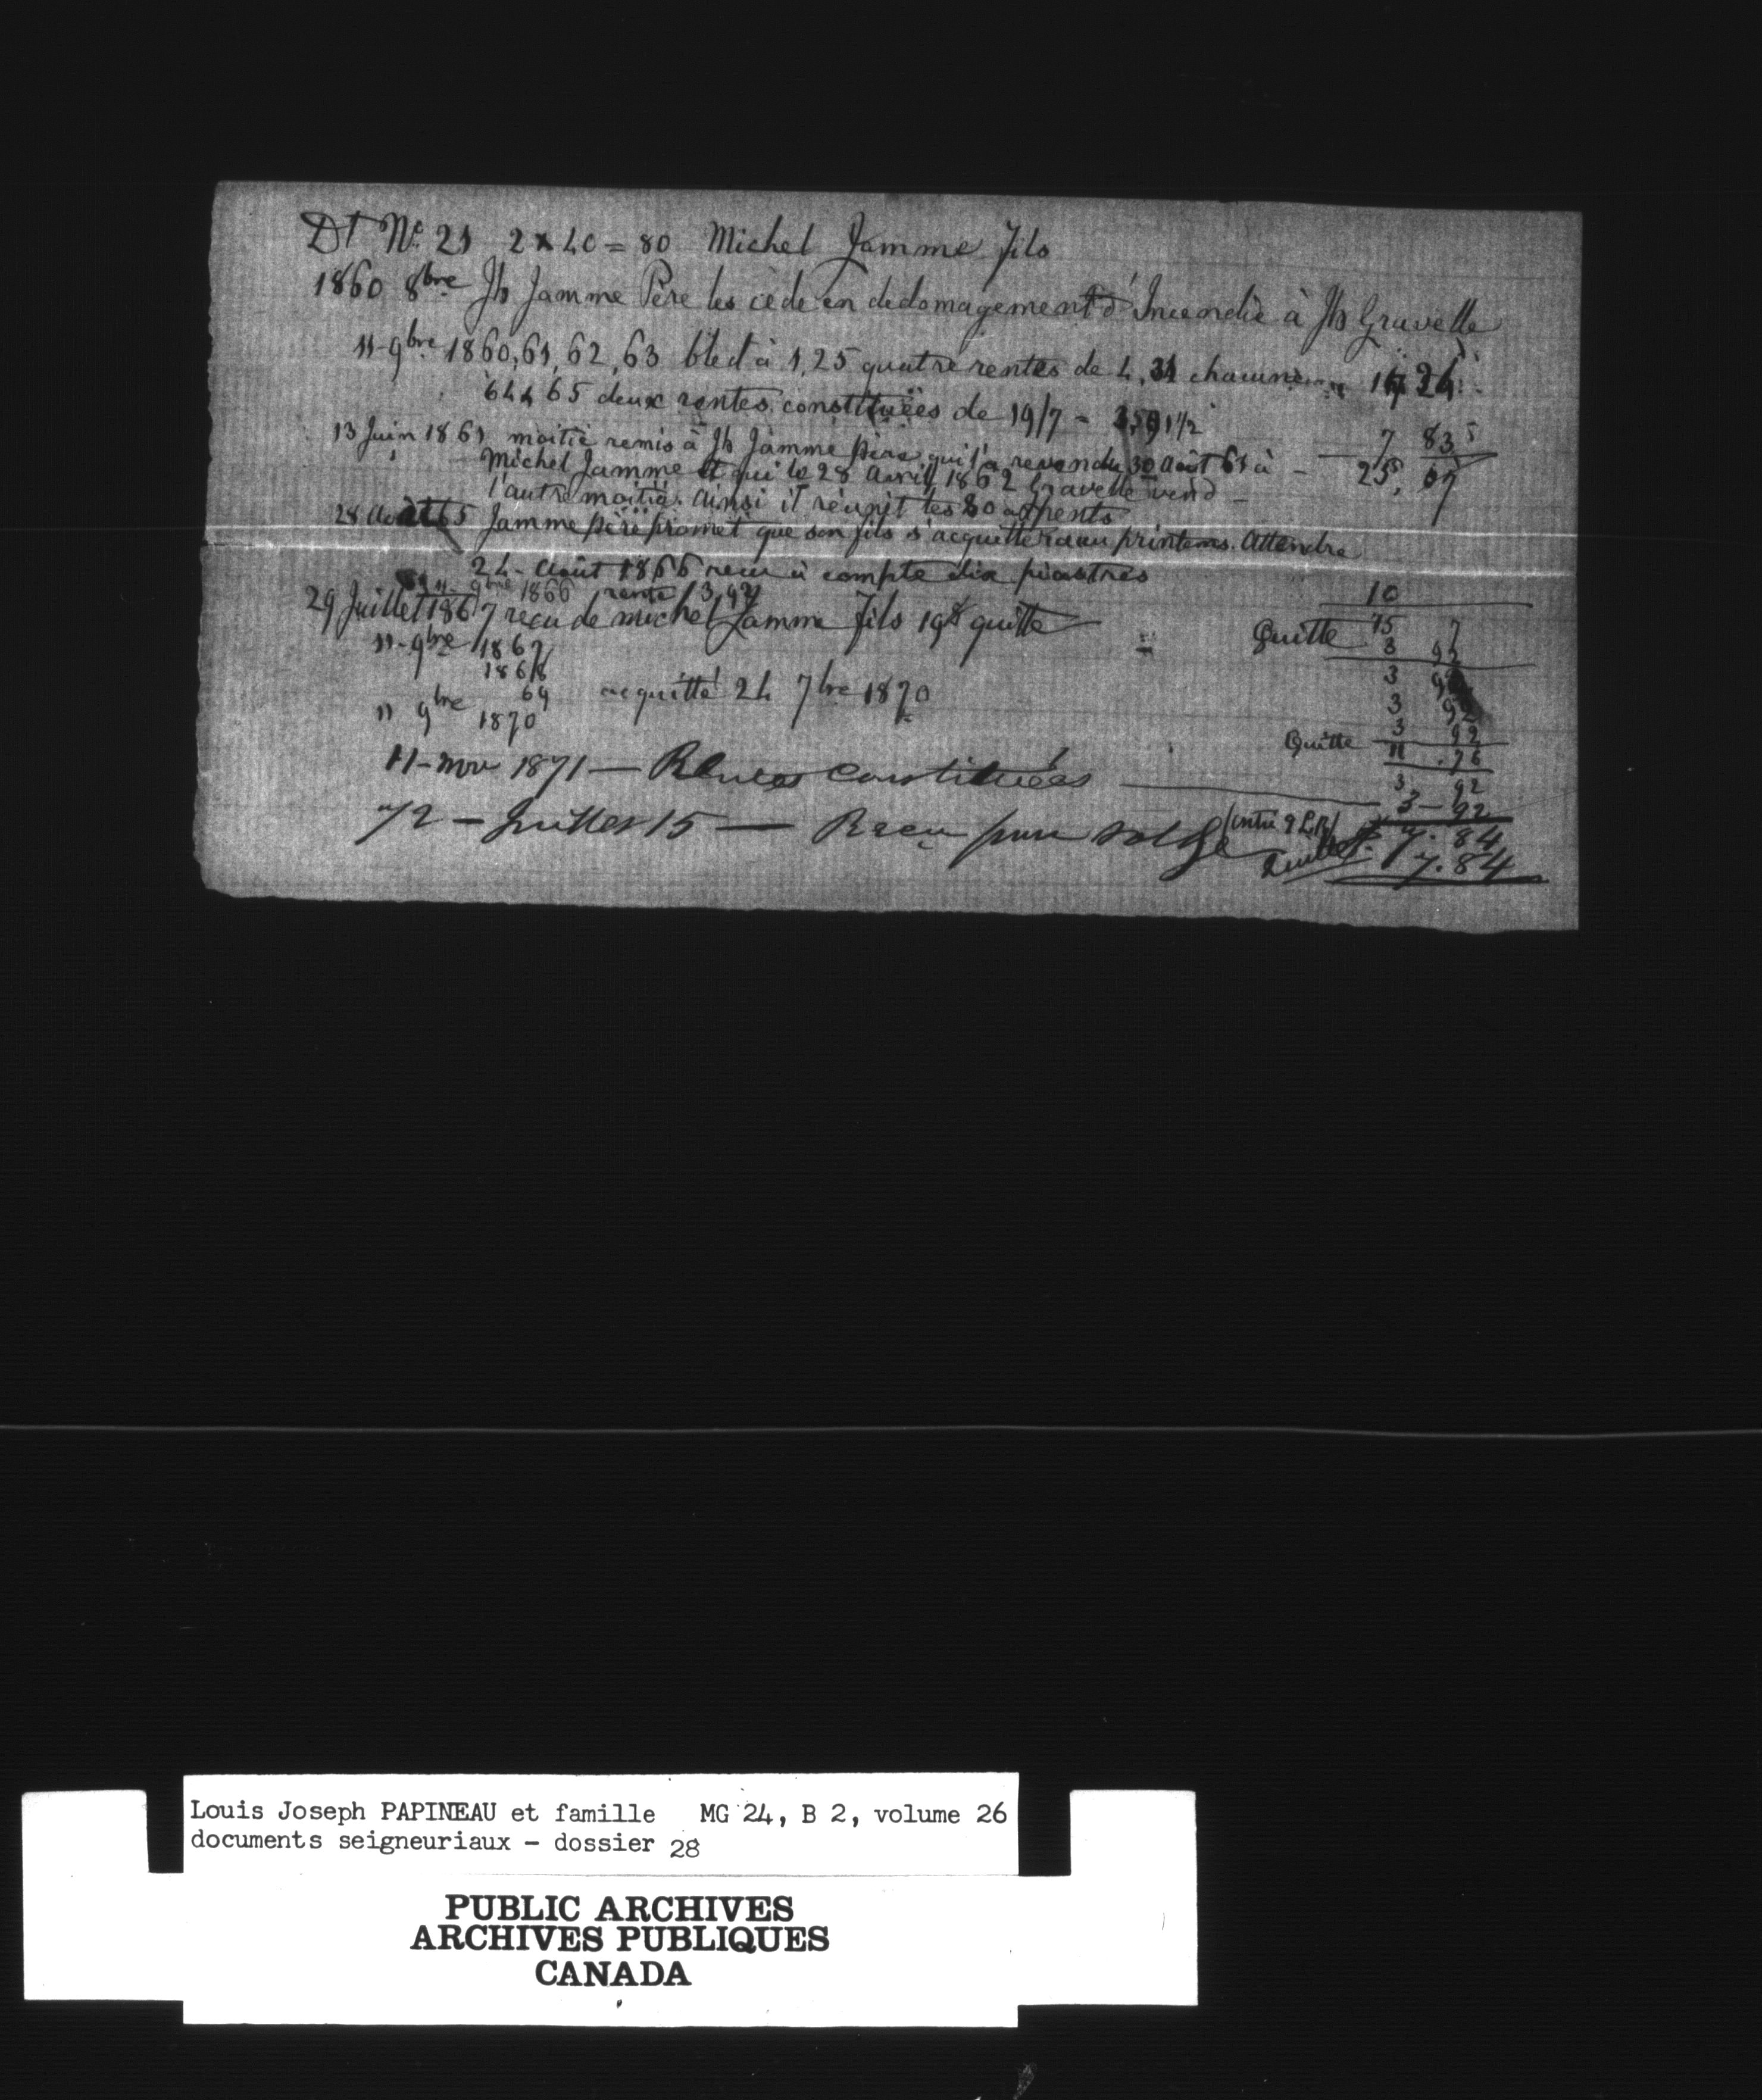 Dt No. 21 2 x 40 = 80 Michel Jamme fils
1860 8bre Jh Jamme Père les cède en dedomagement d'Incendie à Jh Gravelle
11-9bre 1860, 61, 62, 63 bled à 1,25 quatre rentes de 4,31 chacune 17 24
64 & 65 deux rentes constituées de 19/7 = 3,91 1/2 7 83
13 Juin 1861 moitié remis à Jh Jamme père qui l'a revendu 30 août 61 à 25, 07
Michel Jamme et qui le 28 Avril 1862 Gravelle vend
l'autre moitié. Ainsi il réunit les 80 arpents
28 août 65 Jamme père promet que son fils s'acquittera au printems. Attendre
24 - août 1866 reçu à compte dix piastres 10
11 9bre 1866 rente 3,92 15 7
29 Juillet 1867 reçu de Michel Jamme fils 19$ quitte = Quitte 3 92
11-9bre 1867 3 92
1868 3 92
69 acquitté 24 7bre 1870 3 92
11 9bre 1870 Quitte 11.76
11-nov 1871 — Rentes constituées 3 92
3-92
72 - Juillet 15 — Reçu pour solde 7.84
Quitte $ 7.84
Louis Joseph PAPINEAU et famille MG 24, B 2, volume 26
documents seigneuriaux - dossier 28
PUBLIC ARCHIVES
ARCHIVES PUBLIQUES
CANADA